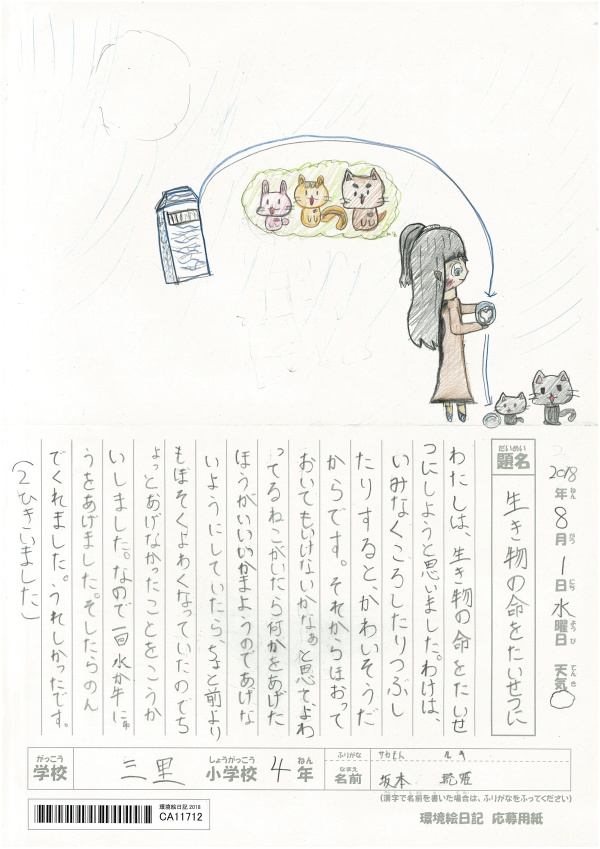 2018年ねん8月がつ1日にち水曜日ようび 天気てんき
だいめい
題名 生き物の命をたいせつに
わたしは、生き物の命をたいせ
つにしようと思いました。わけは、
いみなくころしたりつぶし
たりすると、かわいそうだ
からです。それからほおって
おいてもいけないかなぁと思てよわ
ってるねこがいたら何かをあげた
ほうがいいいかまようのであげな
いようにしていたら、ちょと前より
もほそくよわくなっていたのでち
ょっとあげなかったことをこうか
いしました。なので一回水か牛にゅ
うをあげました。そしたらのん
でくれました。うれしかったです。
(2ひきいました)
がっこう しょうがっこう ねん
学校 三里 小学校 4 年
ふりがな サカもと
なまえ
名前 坂本 琉姫
(漢字で名前を書いた場合は、ふりがなをふってください)
環境絵日記 2018
CA11712
環境絵日記 応募用紙